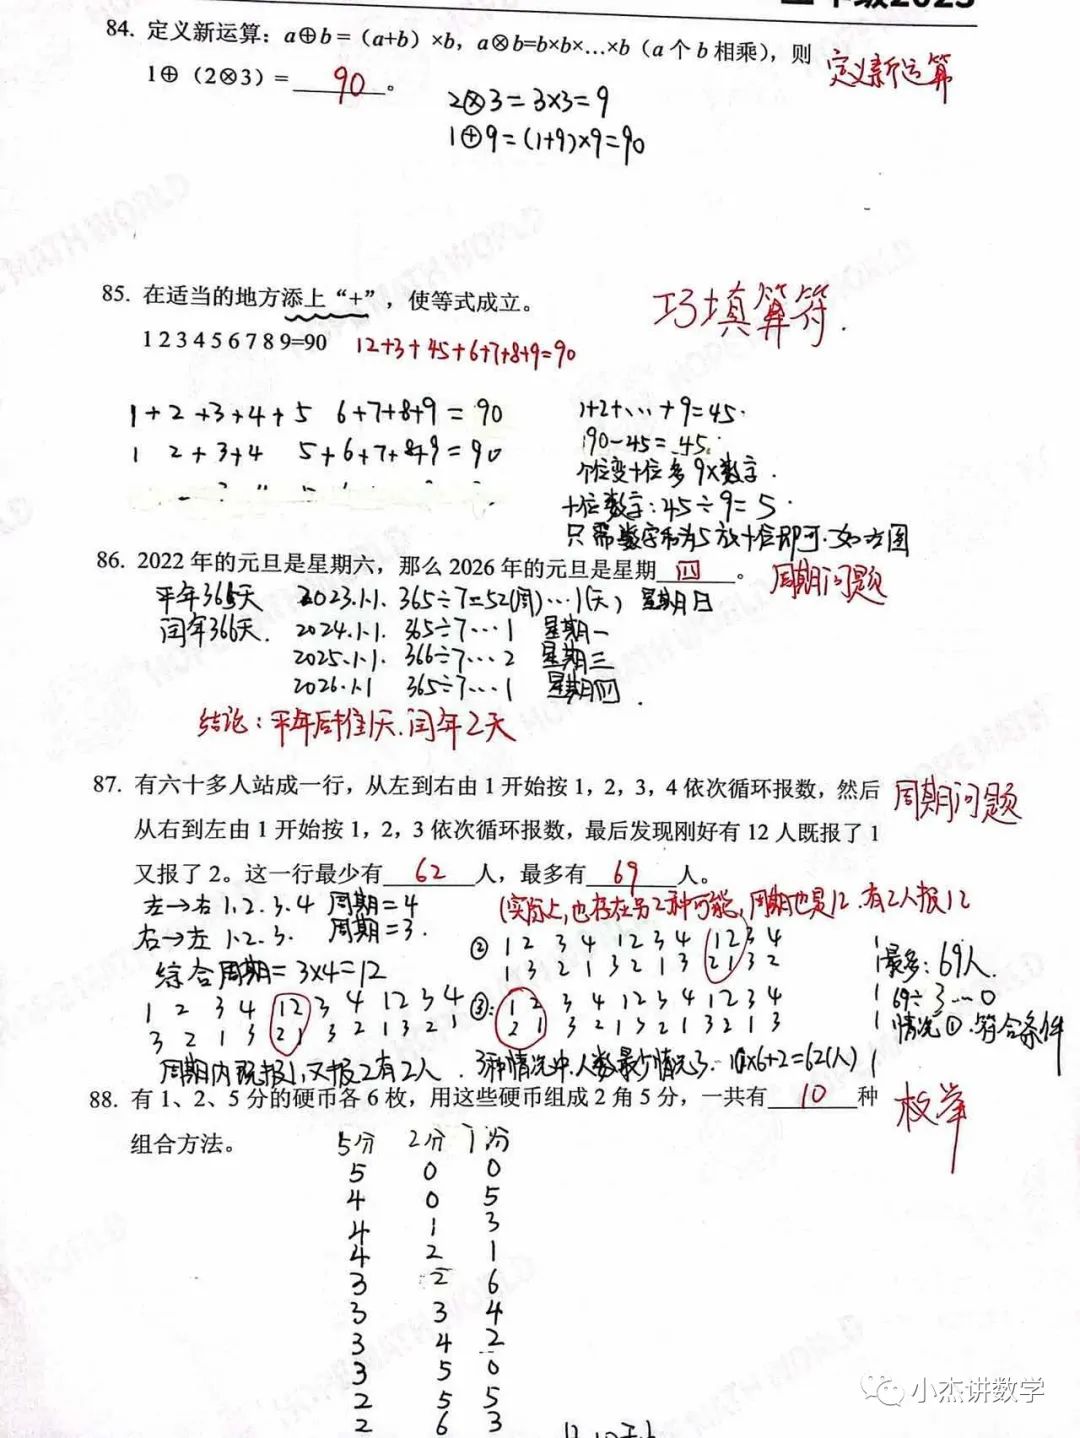 84. 定义新运算：a⊕b =（a+b）×b，a⊗b=b×b×…×b（a 个 b 相乘），则
定义新运算
1⊕（2⊗3）= 90 。
2⊗3=3×3=9
1⊕9=(1+9)×9=90
85. 在适当的地方添上“+”，使等式成立。
巧填算符.
1 2 3 4 5 6 7 8 9=90
12+3+45+6+7+8+9=90
1+2+3+4+5 6+7+8+9=90
1 2+3+4 5+6+7+8+9=90
1+2+…+9=45.
90-45=45.
个位变十位多9×数字.
十位数字:45÷9=5.
只需数字和为5放十位即可.如左图
86. 2022 年的元旦是星期六，那么 2026 年的元旦是星期 四 。
周期问题
平年365天 2023.1.1. 365÷7=52(周)…1(天) 星期日
闰年366天. 2024.1.1. 365÷7…1 星期一
2025.1.1. 366÷7…2 星期三
2026.1.1 365÷7…1 星期四.
结论:平年后推1天.闰年2天
87. 有六十多人站成一行，从左到右由 1 开始按 1，2，3，4 依次循环报数，然后
周期问题
从右到左由 1 开始按 1，2，3 依次循环报数，最后发现刚好有 12 人既报了 1
又报了 2。这一行最少有 62 人，最多有 69 人。
(实际上,也存在另2种可能,周期也是12.有2人报12
左→右 1.2.3.4 周期=4
右→左 1.2.3. 周期=3.
综合周期=3×4=12
1 2 3 4 1 2 3 4 1 2 3 4
3 2 1 3 2 1 3 2 1 3 2 1
周期内既报1,又报2有2人.
② 1 2 3 4 1 2 3 4 1 2 3 4
1 3 2 1 3 2 1 3 2 1 3 2
③: 1 2 3 4 1 2 3 4 1 2 3 4
2 1 3 2 1 3 2 1 3 2 1 3
3种情况中.人数最少情况3.
最多:69人.
69÷3…0
情况①.符合条件
88. 有 1、2、5 分的硬币各 6 枚，用这些硬币组成 2 角 5 分，一共有 10 种
枚举
组合方法。
5分 2分 1分
5 0 0
4 0 5
4 1 3
4 2 1
3 2 6
3 3 4
3 4 2
3 5 0
2 5 5
2 6 3
小杰讲数学